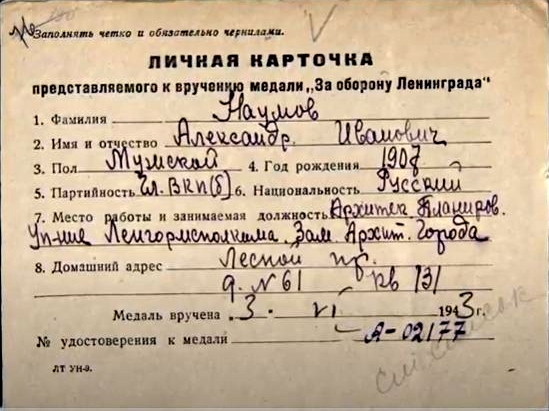 Заполнять четко и обязательно чернилами.
ЛИЧНАЯ КАРТОЧКА
представляемого к вручению медали „За оборону Ленинграда"
1. Фамилия Наумов
2. Имя и отчество Александр. Иванович
3. Пол Мужской 4. Год рождения 1907
5. Партийность Чл. ВКП(б) 6. Национальность Русский
7. Место работы и занимаемая должность Архитек Планиров.
Упр-ние Ленгорисполкома. Зам. Архит. Города
8. Домашний адрес Лесной пр.
д. №61 кв 131
Медаль вручена „3. VI 1943 г.
№ удостоверения к медали А-02177
ЛТ УН-9.